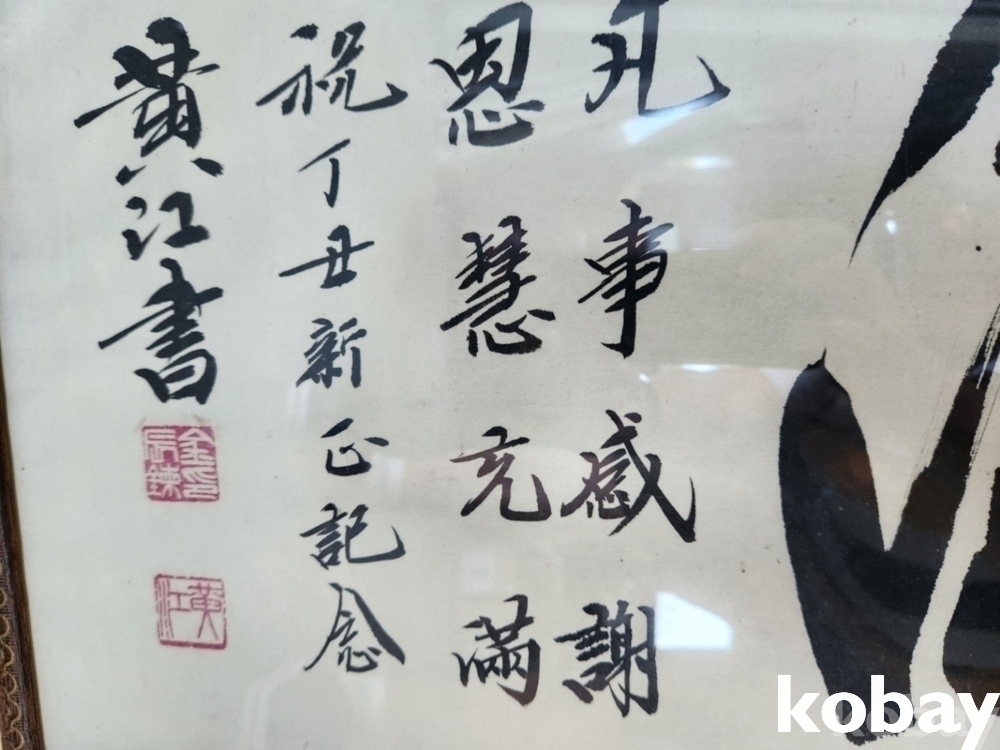 凡事感謝
恩慧充滿
祝丁丑新正記念
黃江書
金辰鍊印
黃江
kobay